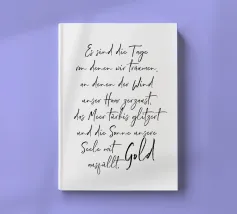 Es sind die Tage
von denen wir träumen,
an denen der Wind
unser Haar zerzaust,
das Meer türkis glitzert
und die Sonne unsere
Seele mit Gold
ausfüllt.